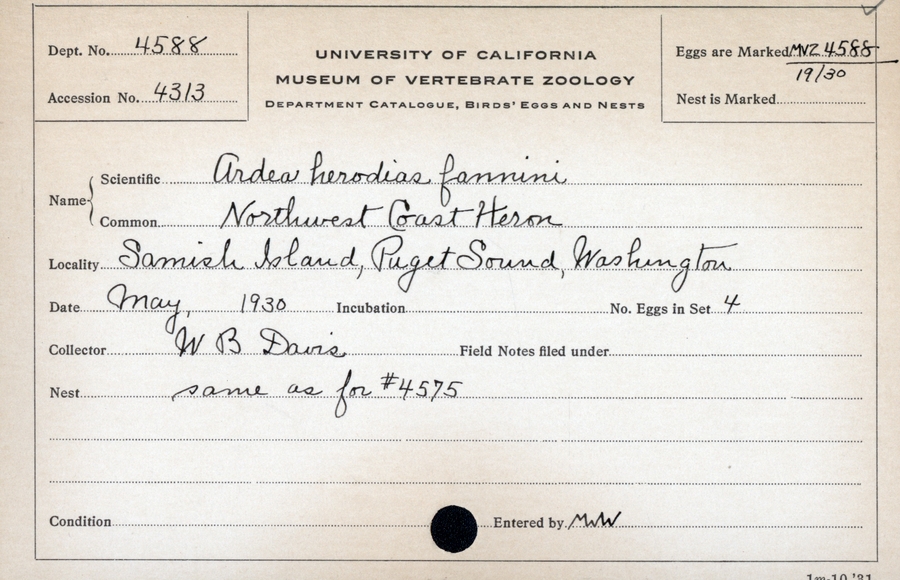 Dept. No. 4588
Accession No. 4313
UNIVERSITY OF CALIFORNIA
MUSEUM OF VERTEBRATE ZOOLOGY
DEPARTMENT CATALOGUE, BIRDS' EGGS AND NESTS
Eggs are Marked MVZ 4588
19/30
Nest is Marked
Name
Scientific Ardea herodias fannini
Common Northwest Coast Heron
Locality Samish Island, Puget Sound, Washington
Date May, 1930 Incubation No. Eggs in Set 4
Collector W B Davis Field Notes filed under
Nest same as for #4575
Condition Entered by
1m-10,'31